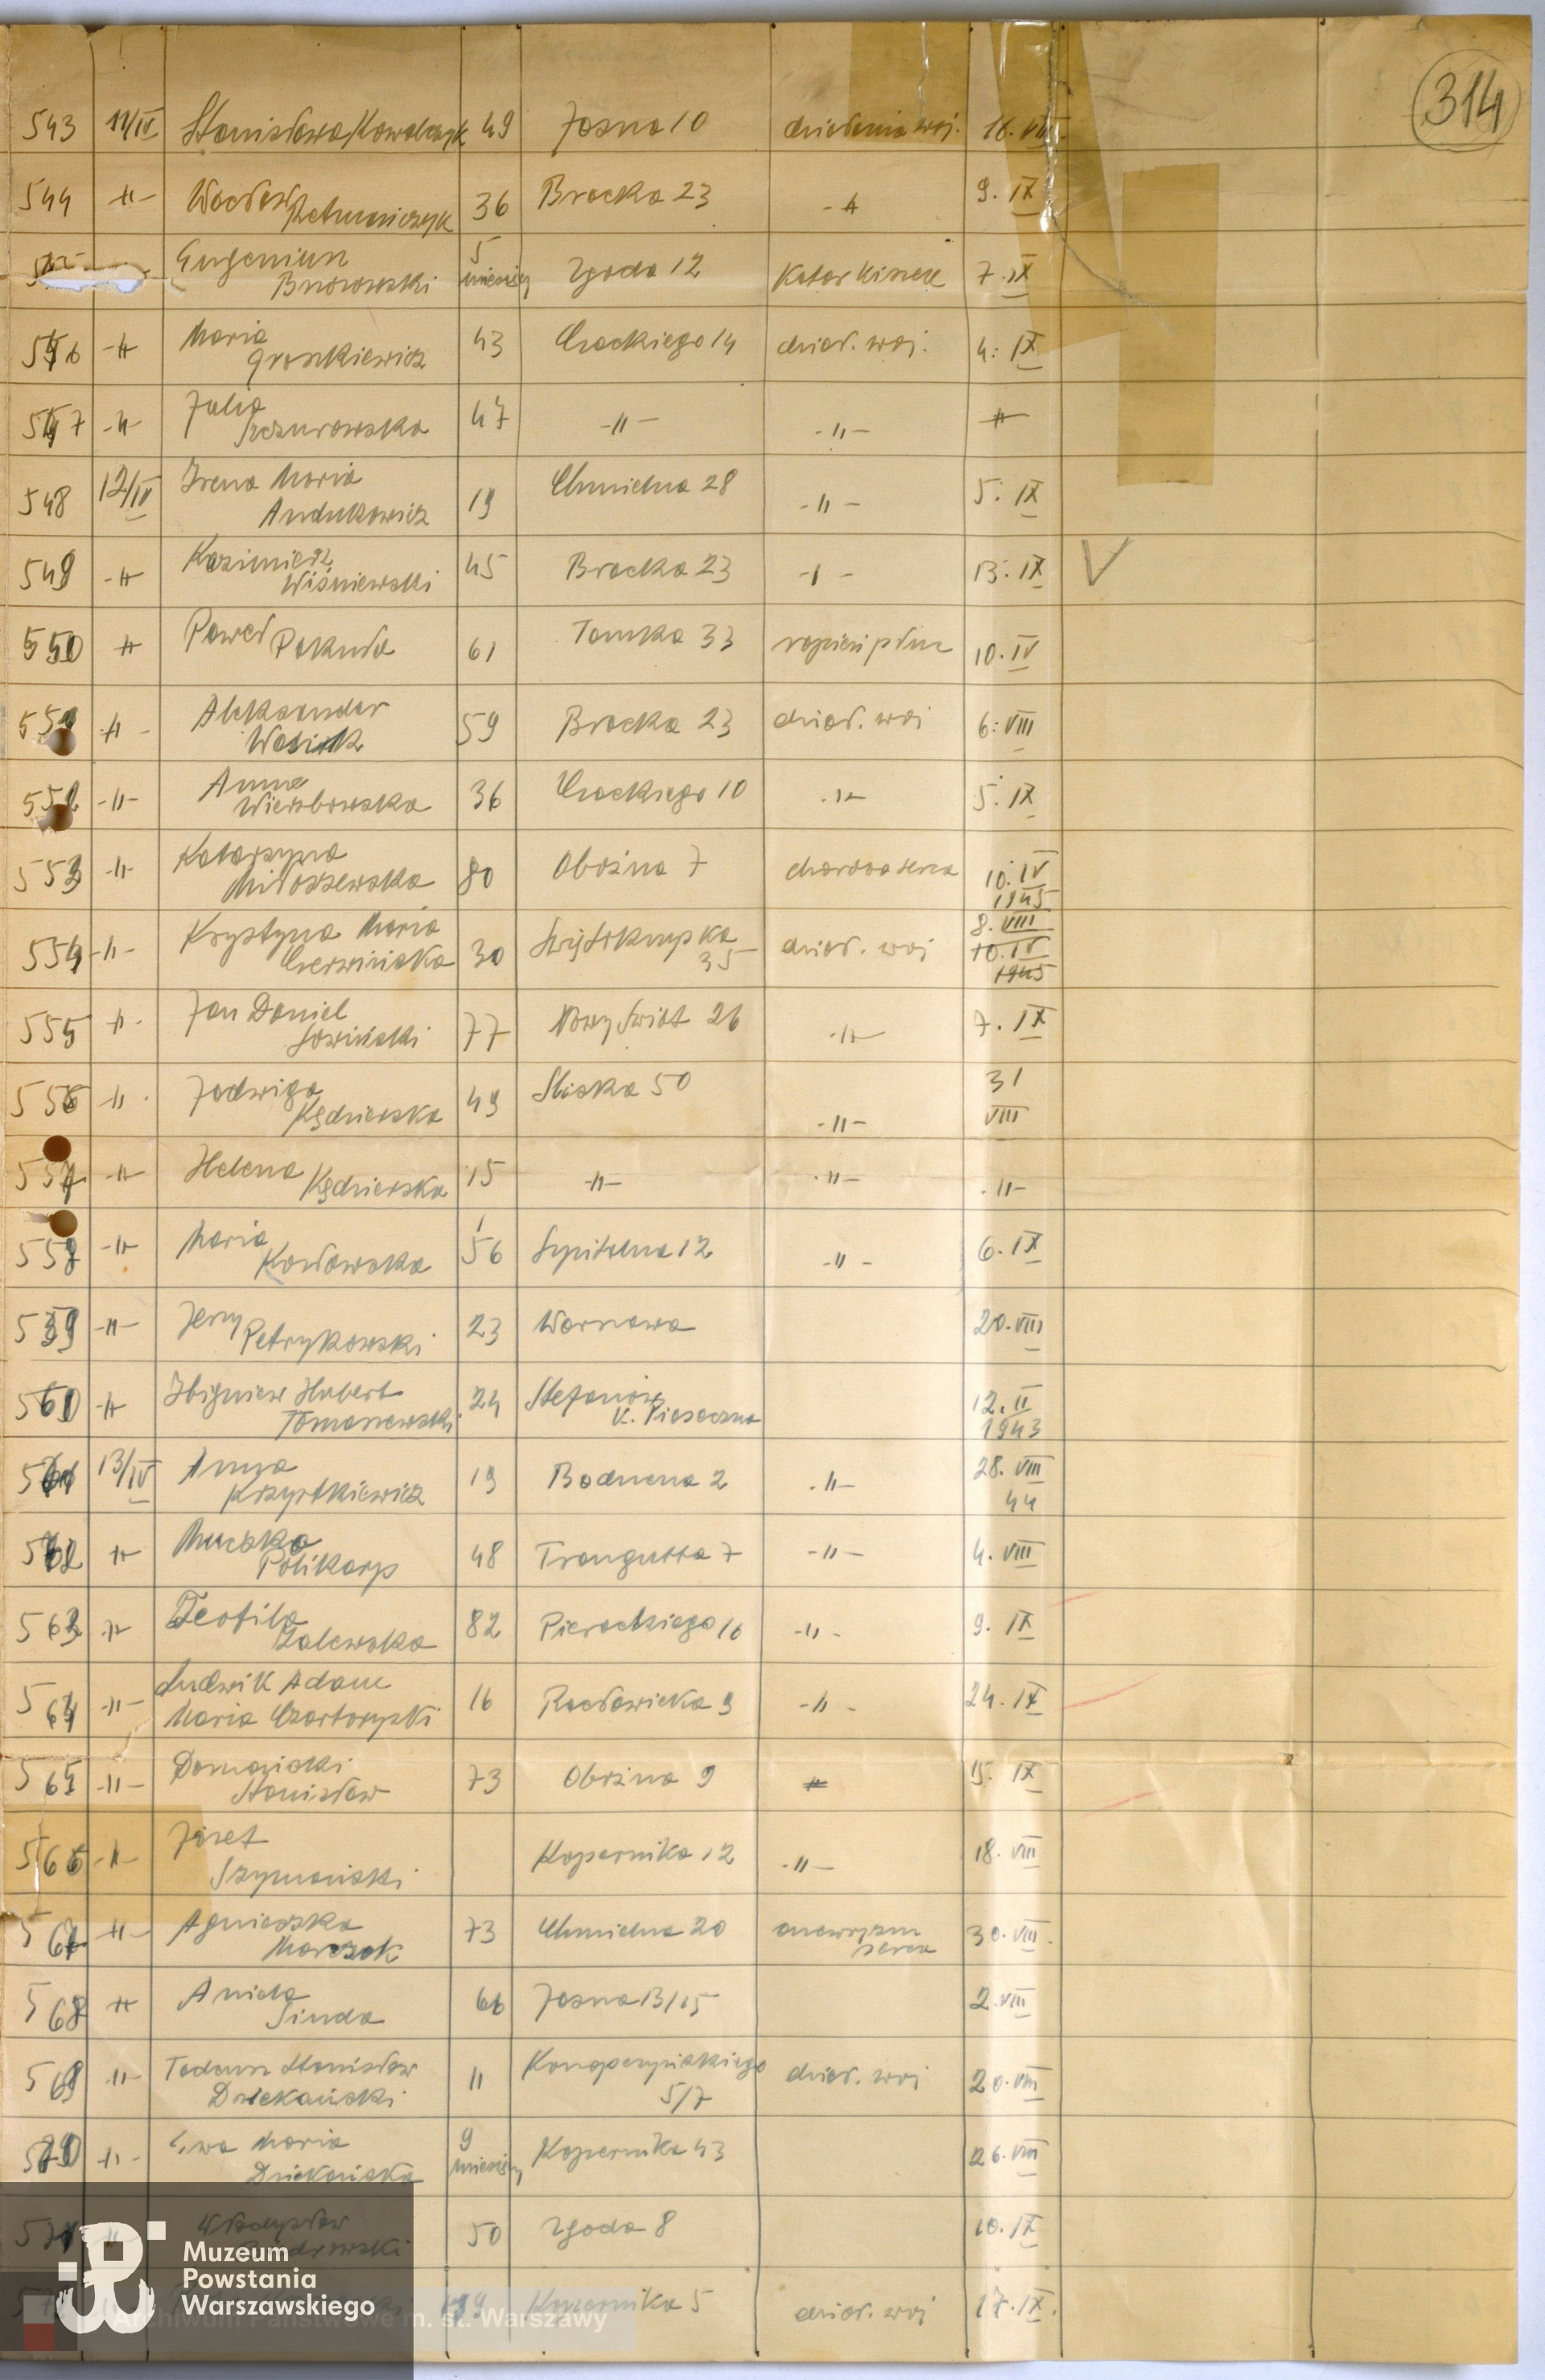 314
543 11/IV Stanisława Kowalczyk 49 Jasna 10 działania woj. 16. VIII
544 -"- Wacław 36 Bracka 23 -"- 9. IX
Eugeniusz 5
Brzozowski miesięcy Zgoda 12 Katar kiszek 7. IX
546 -"- Maria
Groszkiewicz 43 Czackiego 14 dział. woj. 4. IX
547 -"- Julia
Szczurowska 47 -"- -"- -"-
548 12/IV Irena Maria
Andukowicz 19 Chmielna 28 -"- 5. IX
549 -"- Kazimierz
Wiśniewski 45 Bracka 23 -"- 13. IX V
550 -"- Paweł Pakuła 61 Tamka 33 zapal. płuc 10. IV
551 -"- Aleksander
Wasiak 59 Bracka 23 dział. woj 6. VIII
552 -"- Anna
Wierzbowska 36 Czackiego 10 -"- 5. IX
553 -"- Katarzyna
Miłoszewska 80 Oboźna 7 choroba serca 10. IV
1945
554 -"- Krystyna Maria
Czerwińska 30 Świętokrzyska
35 dział. woj 8. VIII
10. IV
1945
555 -"- Jan Daniel
Łowiński 77 Nowy Świat 26 -"- 7. IX
556 -"- Jadwiga
Kędzierska 49 Śliska 50 -"- 31
VIII
557 -"- Helena
Kędzierska 15 -"- -"- -"-
558 -"- Maria
Kozłowska 56 Szpitalna 12 -"- 6. IX
559 -"- Jerzy
Petrykowski 23 Warszawa 20. VIII
560 -"- Zbigniew Hubert
Tomaszewski 24 Stefanów
k. Piaseczna 12. II
1943
561 13/IV Anna
Krzystkiewicz 19 Boduena 2 -"- 28. VIII
44
562 -"- Muszka
Polikarp 48 Traugutta 7 -"- 4. VIII
563 -"- Teofila
Zalewska 82 Pierackiego 16 -"- 9. IX
564 -"- Ludwik Adam
Maria Czartoryski 16 Racławicka 9 -"- 24. IX
565 -"- Domański
Stanisław 73 Oboźna 9 -"- 15. IX
566 -"- Józef
Szymański Kopernika 12 -"- 18. VIII
567 -"- Agnieszka
Marczak 73 Chmielna 20 anewryzm
serca 30. VIII.
568 -"- Aniela
Sinda 66 Jasna 13/15 2. VIII
569 -"- Tadeusz Stanisław
Dziekański 11 Konopczyńskiego
5/7 dział. woj 20. VIII
570 -"- Ewa Maria
Dziekańska 9
miesięcy Kopernika 43 26. VIII
571 -"- Władysław 50 Zgoda 8 10. IX
Kopernika 5 dział. woj 17. IX.
Muzeum
Powstania
Warszawskiego
Archiwum Państwowe m. st. Warszawy